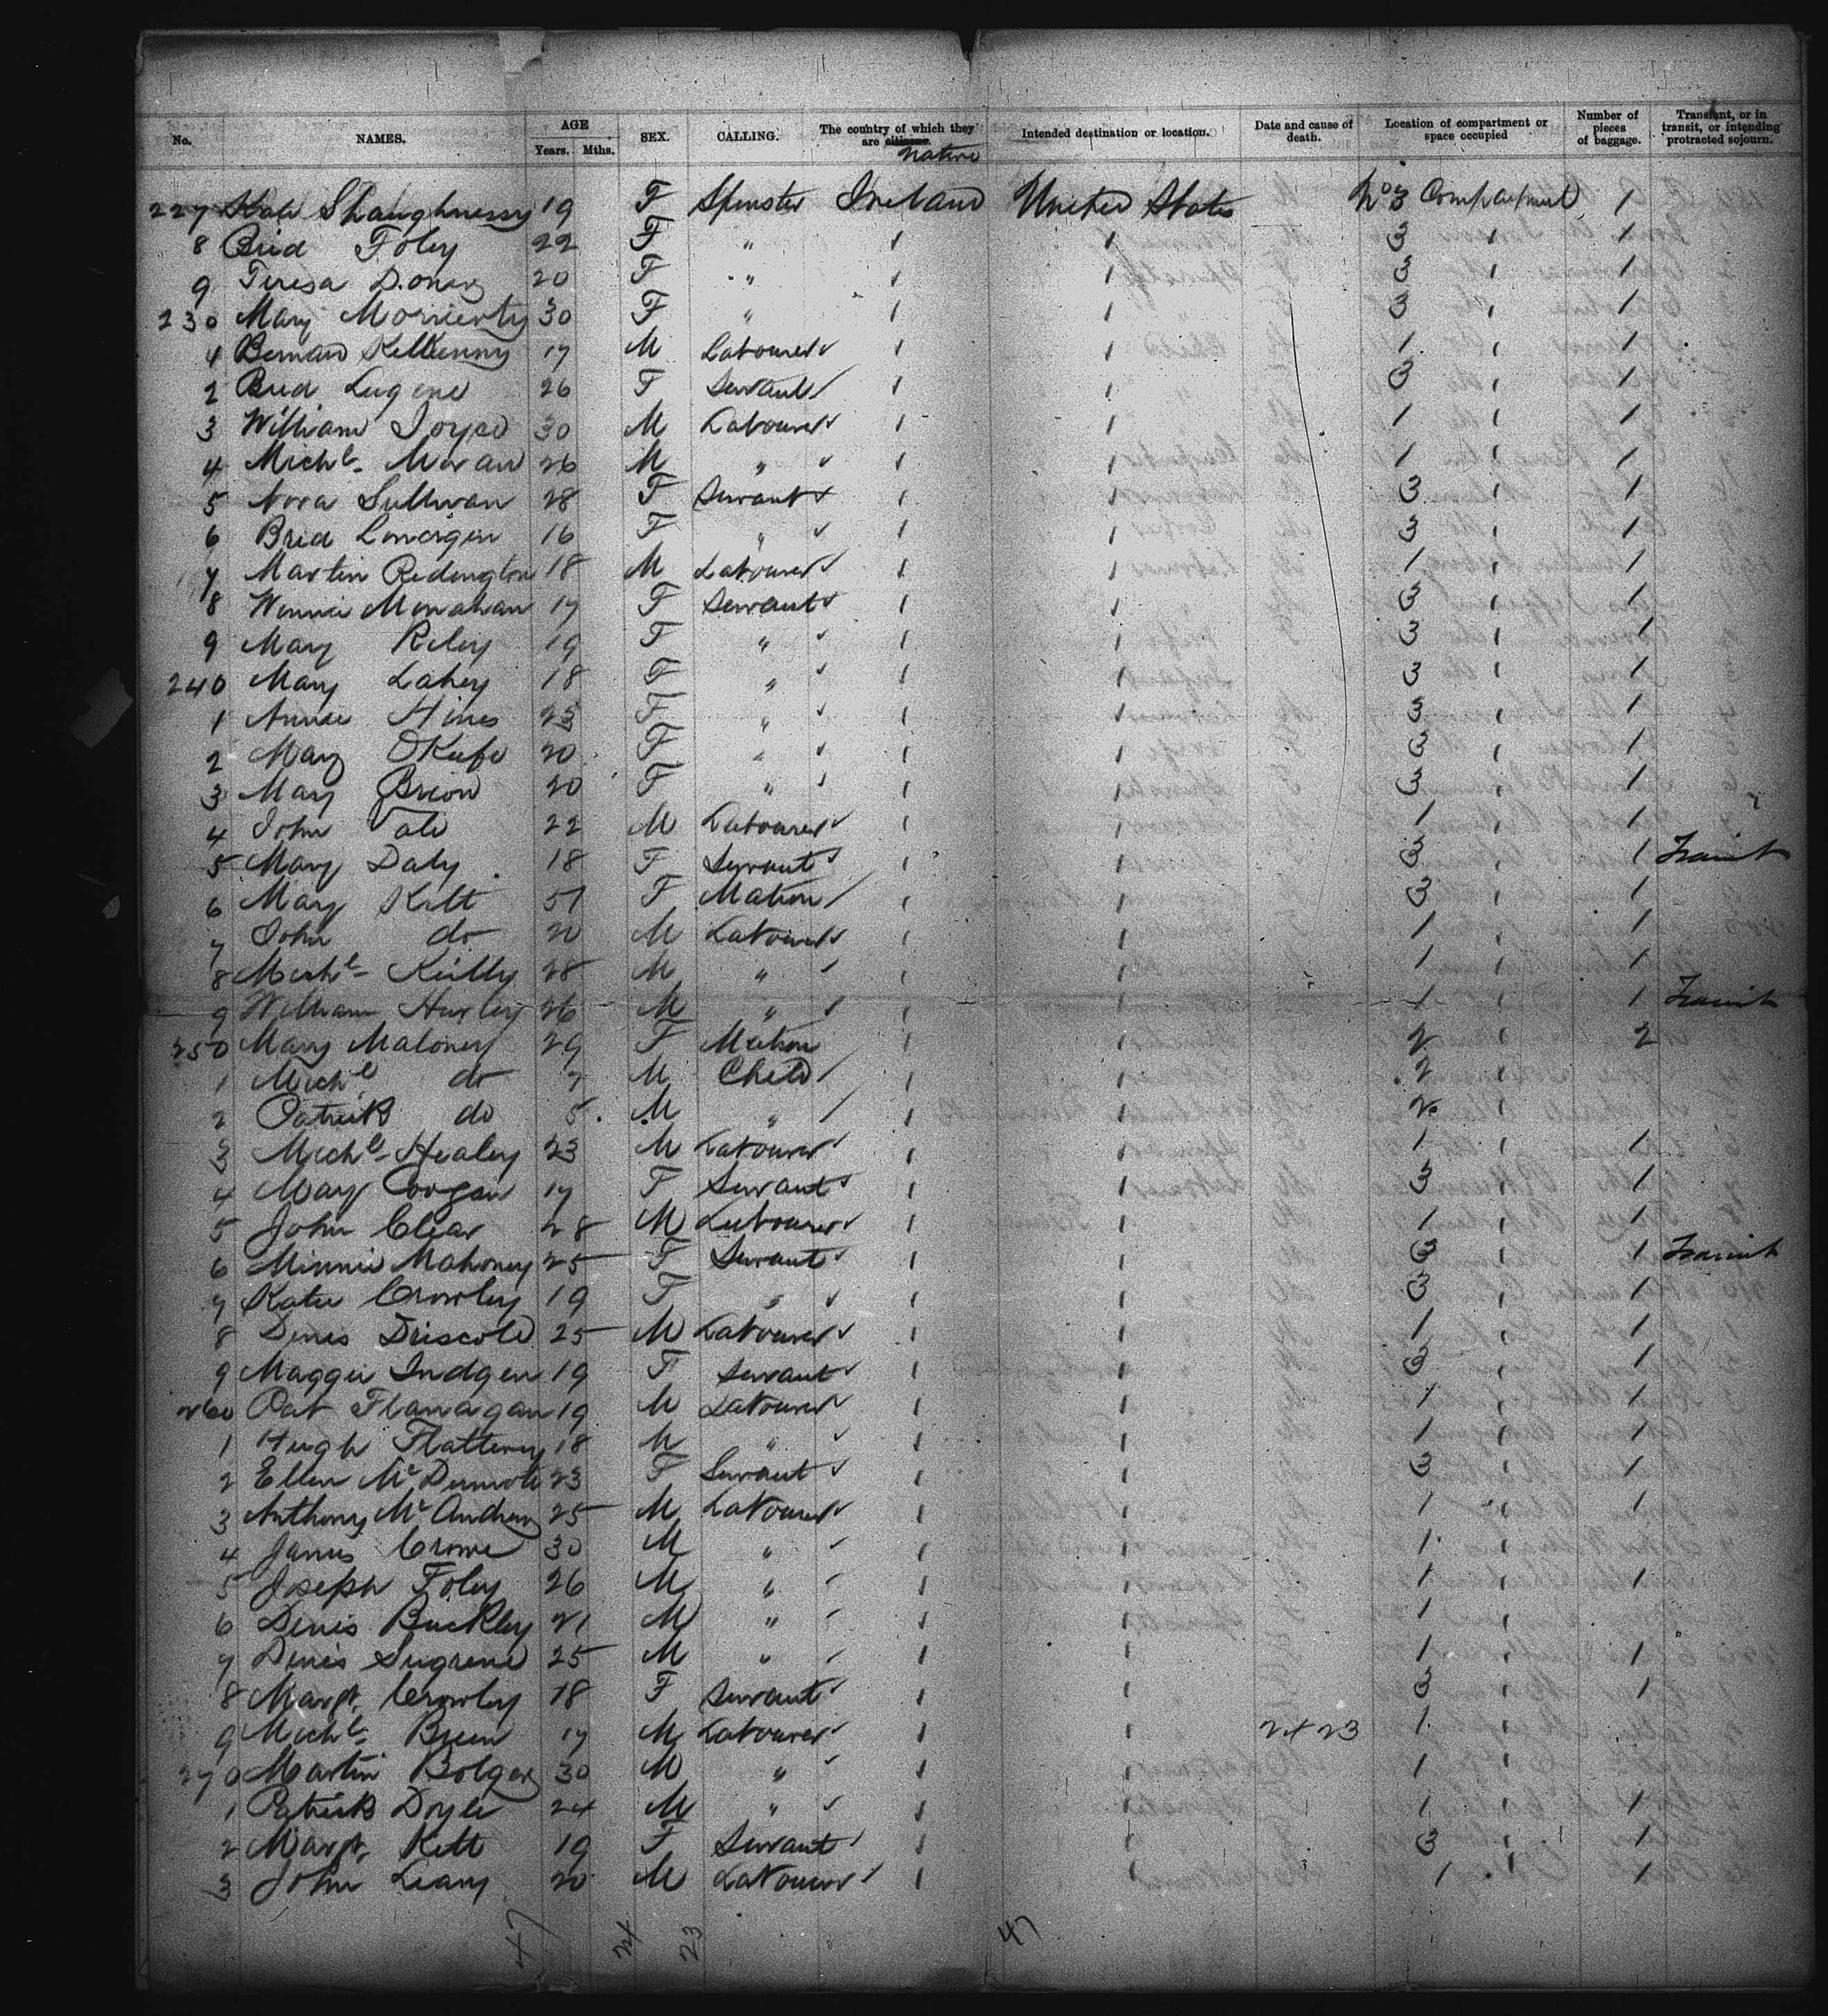 No. NAMES. AGE Years. Mths. SEX. CALLING. The country of which they are citizens. native Intended destination or location. Date and cause of death. Location of compartment or space occupied Number of pieces of baggage. Transient, or in transit, or intending protracted sojourn.
227 Kate Shaughnessy 19 F Spinster Ireland United States No 3 Compartment 1
8 Brid Foley 22 F " 1 1 3 1 1
9 Teresa 20 F " 1 1 3 1 1
230 Mary Morrierty 30 F " 1 1 3 1 1
Bernard Kilkenny 17 M Labourer 1 1 1 1 1
2 Brid 26 F Servant 1 1 3 1 1
3 William Joyce 30 M Labourer 1 1 1 1 1
4 Michl Moran 26 M " 1 1 1 1 1
5 Nora Sullivan 28 F Servant 1 1 3 1 1
6 Brid Lonergan 16 F " 1 1 3 1 1
7 Martin Redington 18 M Labourer 1 1 1 1 1
8 Winnie Monahan 17 F Servant 1 1 3 1 1
9 Mary Riley 19 F " 1 1 3 1 1
240 Mary Lahey 18 F " 1 1 3 1 1
1 Annie Hines F " 1 1 3 1 1
2 Mary OKeefe 20 F " 1 1 3 1 1
3 Mary Brion 20 F " 1 1 3 1 1
4 John 22 M Labourer 1 1 1 1 1
5 Mary Daly 18 F Servant 1 1 3 1 1 Transit
6 Mary Kitt 51 F Matron 1 1 3 1 1
7 John do 20 M Labourer 1 1 1 1 1
8 Michl Reilly 28 M " 1 1 1 1 1
9 William Huxley 26 M " 1 1 1 1 1 Transit
250 Mary Maloney 29 F Matron 1 1 2 1 2
1 Michl do 7 M Child 1 1 2 1
2 Patrick do 5 M " 1 1 2 1
3 Michl Healey 23 M Labourer 1 1 1 1 1
4 Mary Coogan 17 F Servant 1 1 3 1 1
5 John Clear 28 M Labourer 1 1 1 1 1
6 Minnie Mahoney 25 F Servant 1 1 3 1 1 Transit
7 Katie Crowley 19 F " 1 1 3 1 1
8 Denis Driscoll 25 M Labourer 1 1 1 1 1
9 Maggie Indgen 19 F Servant 1 1 3 1 1
260 Pat Flanagan 19 M Labourer 1 1 1 1 1
1 Hugh Flattery 18 M " 1 1 1 1 1
2 Ellen McDermott 23 F Servant 1 1 3 1 1
3 Anthony McAndrew 25 M Labourer 1 1 1 1 1
4 James Crowe 30 M " 1 1 1 1
5 Joseph Foley 26 M " 1 1 1 1 1
6 Denis Buckley 21 M " 1 1 1 1
7 Denis Sugrene 25 M " 1 1 1 1 1
8 Margt. Crowley 18 F Servant 1 1 3 1 1
9 Michl Breen 17 M Labourer 1 1 24 23 1 1
270 Martin Bolger 30 M " 1 1 1 1
1 Patrick Doyle 24 M " 1 1 1 1 1
2 Margt. Kett 19 F Servant 1 1 3 1 1
3 John Leary 20 M Labourer 1 1 1 1 1
47 24 23 47